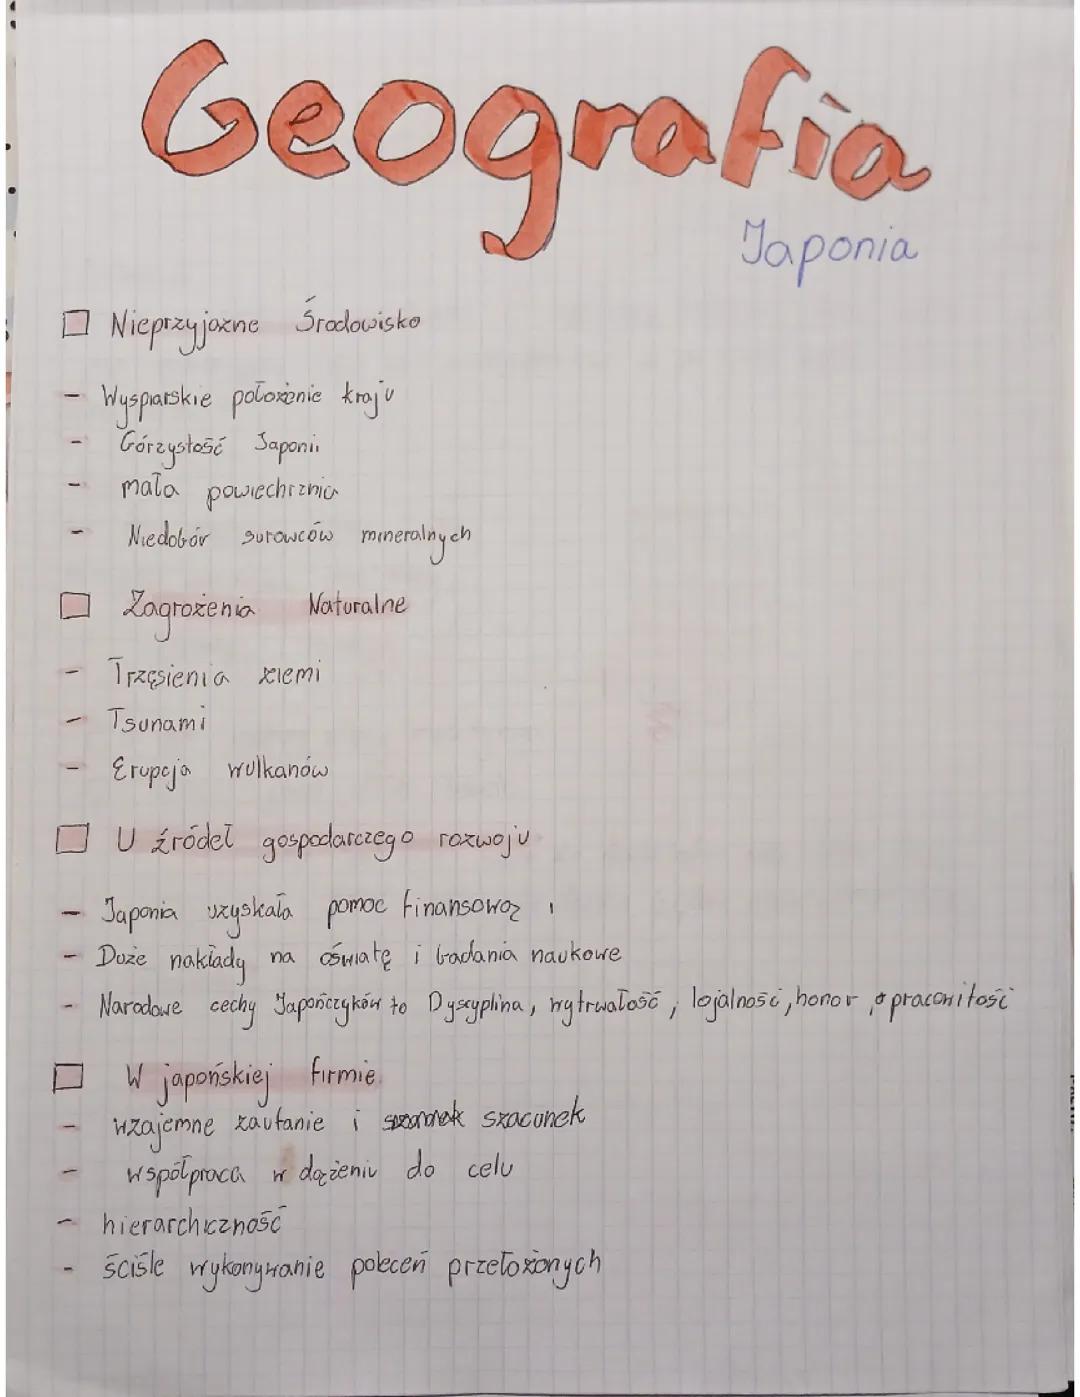 Geografia
Japonia
Nieprzyjazne Środowisko
- Wyspiarskie położenie kraju
- Górzystość Japonii
- mała powierzchnia
- Niedobór surowców mineralnych
Zagrożenia Naturalne
- Trzęsienia ziemi
- Tsunami
- Erupcja wulkanów
U źródeł gospodarczego rozwoju
- Japonia uzyskała pomoc finansową
- Duże nakłady na oświatę i badania naukowe
- Narodowe cechy Japończyków to Dyscyplina, wytrwałość, lojalność, honor, pracowitość
W japońskiej firmie
- wzajemne zaufanie i szacunek
- współpraca w dążeniu do celu
- hierarchiczność
- ściśle wykonywanie poleceń przełożonych